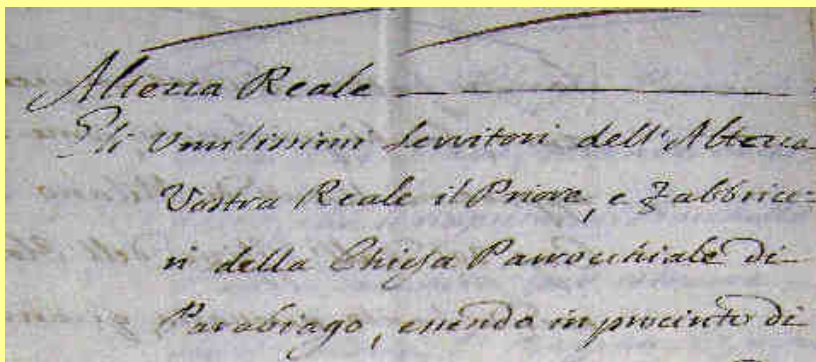 Altezza Reale
Gli Umilissimi Servitori dell'Altezza
Vostra Reale il Priore, e Fabbrice=
ri della Chiesa Parrocchiale di
Parabiago, essendo in procinto di